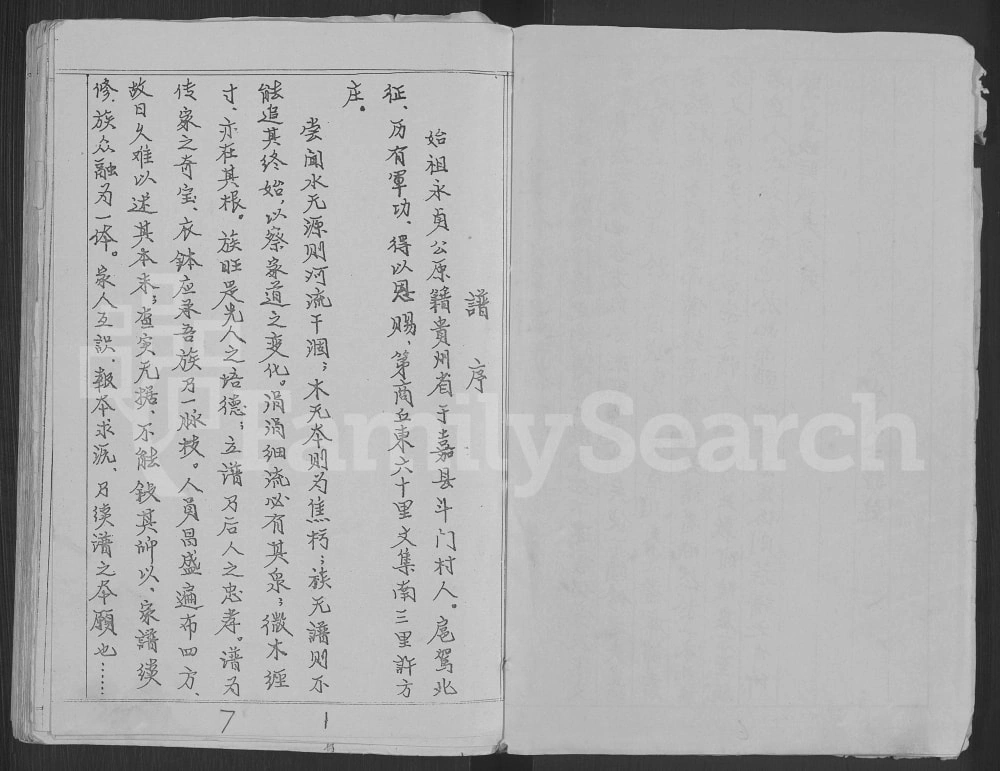 譜序
始祖永贞公原籍貴州省于嘉县斗门村人。扈駕北
征、历有軍功、得以恩赐、第商丘東六十里文集南三里許方
庄。
尝闻水无源则河流干涸；木无本则为焦朽；族无譜则不
能追其终始，以察家道之变化。涓涓细流必有其泉；微木經
寸、亦在其根。族旺是先人之培德；立谱乃后人之忠孝。谱为
传家之奇宝、衣鉢应承吾族乃一脉技。人員昌盛遍布四方、
故日久难以述其本末；查实无据、不能鈙其仰以、家譜续
修、族众融为一体。家人互識、報本求沅、乃续谱之本願也……
7 1
FamilySearch